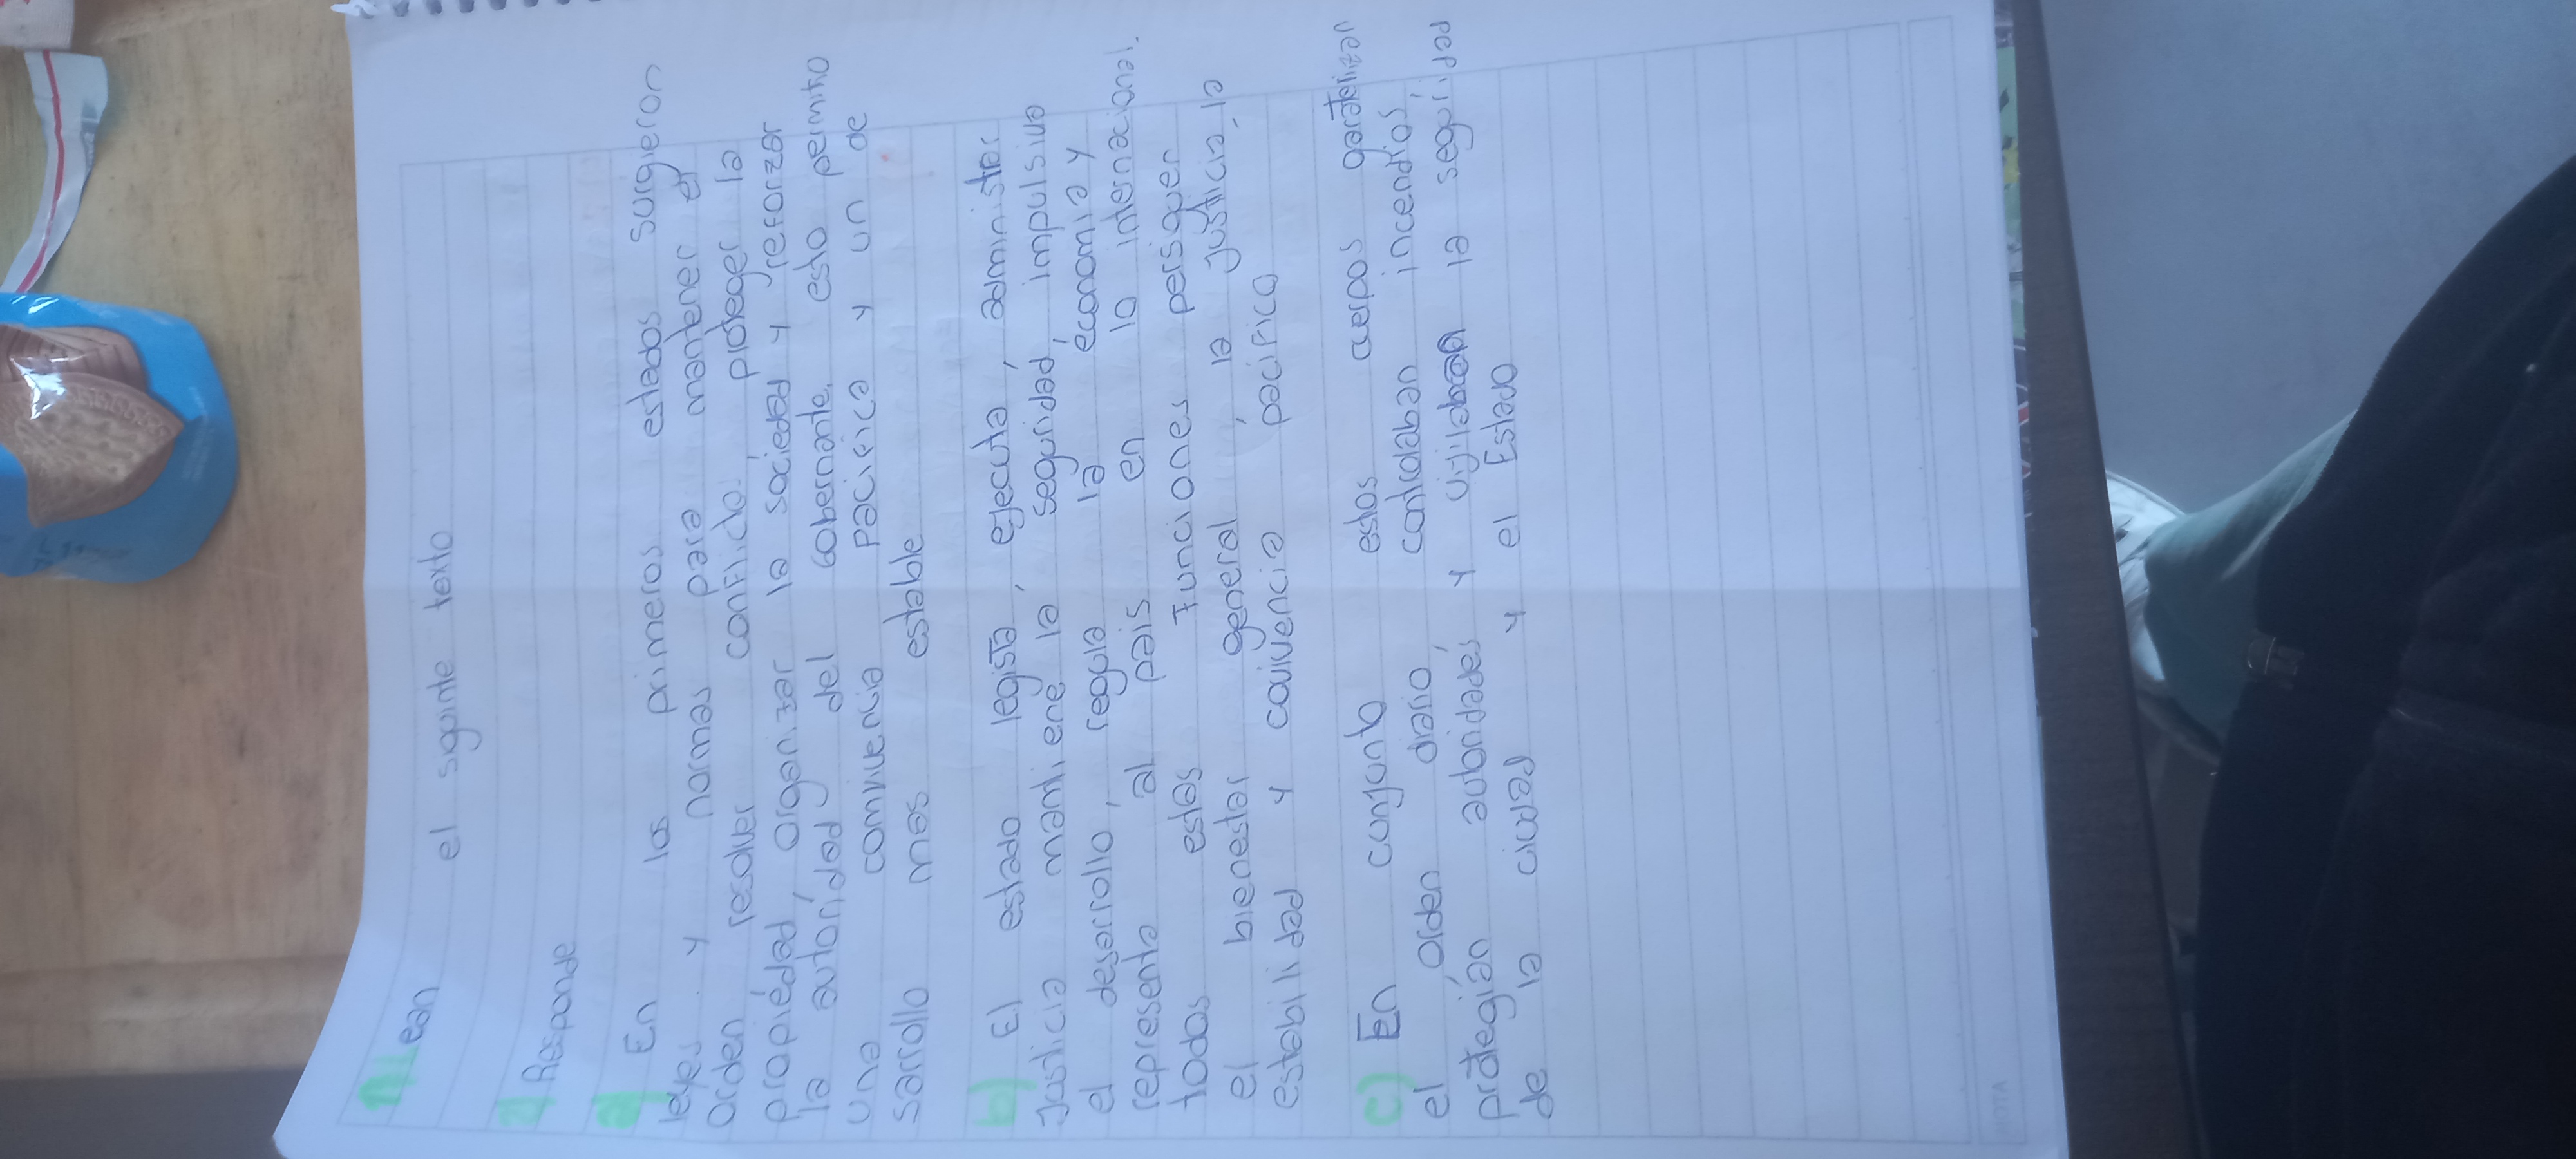 1) Lean el siguinte texto
2) Responde
a) En los primeros estados surgieron
leyes y normas para mantener el
orden resolver conflicto, proteger la
propiedad, organizar la sociedad y reforzar
la autoridad del gobernante, esto permitio
una convivencia pacifica y un de
sarrollo mas estable
b) El estado legista, ejecuta, administrar
Justicia mantiene la seguridad, impulsiva
el desarrollo, regula la economia y
representa al pais en lo internacional.
todas estas Funciones persiguen
el bienestar general, la justicia, la
estabilidad y convivencia pacifica
c) En conjunto estos cuerpos
el orden diario, controlaban incendios,
protegian autoridades y vijilaban la seguridad
de la ciudad y el Estado